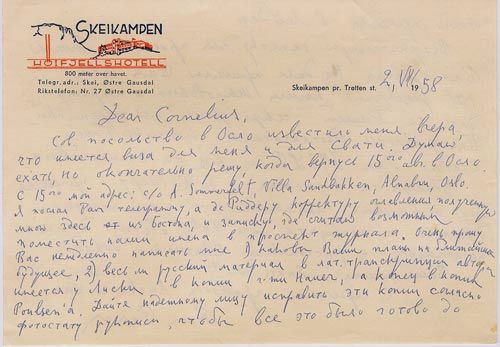 SKEIKAMPEN
HØIFJELLSHOTELL
800 meter over havet.
Telegr.adr.: Skei, Østre Gausdal
Rikstelefon: Nr. 27 Østre Gausdal
Skeikampen pr. Tretten st. 2. VIII 1958
Dear Cornelius,
Сов. посольство в Осло известило меня вчера,
что имеется виза для меня и для Свати. Думаю
ехать, но окончательно решу, когда вернусь 15ого авг. в Осло
С 15ого мой адрес: c/o A. Sommerfelt, Villa Sandbakken, Alnabru, Oslo.
Я послал Вам телеграмму, а де Риддеру корректуру оглавления полученную
мною здесь из Бостона, и записку, где считаю возможным
поместить наши имена в проспект журнала. Очень прошу
Вас немедленно написать мне 1) каковы Ваши планы на ближайшее
будущее, 2) весь ли русский материал в лат. транскрипции автора
имеется у Лиски в копии г-жи, а конец в копии
Poulsen'a. Дайте надежному лицу исправить эти копии согласно
фотостату рукописи, чтобы все это было готово до